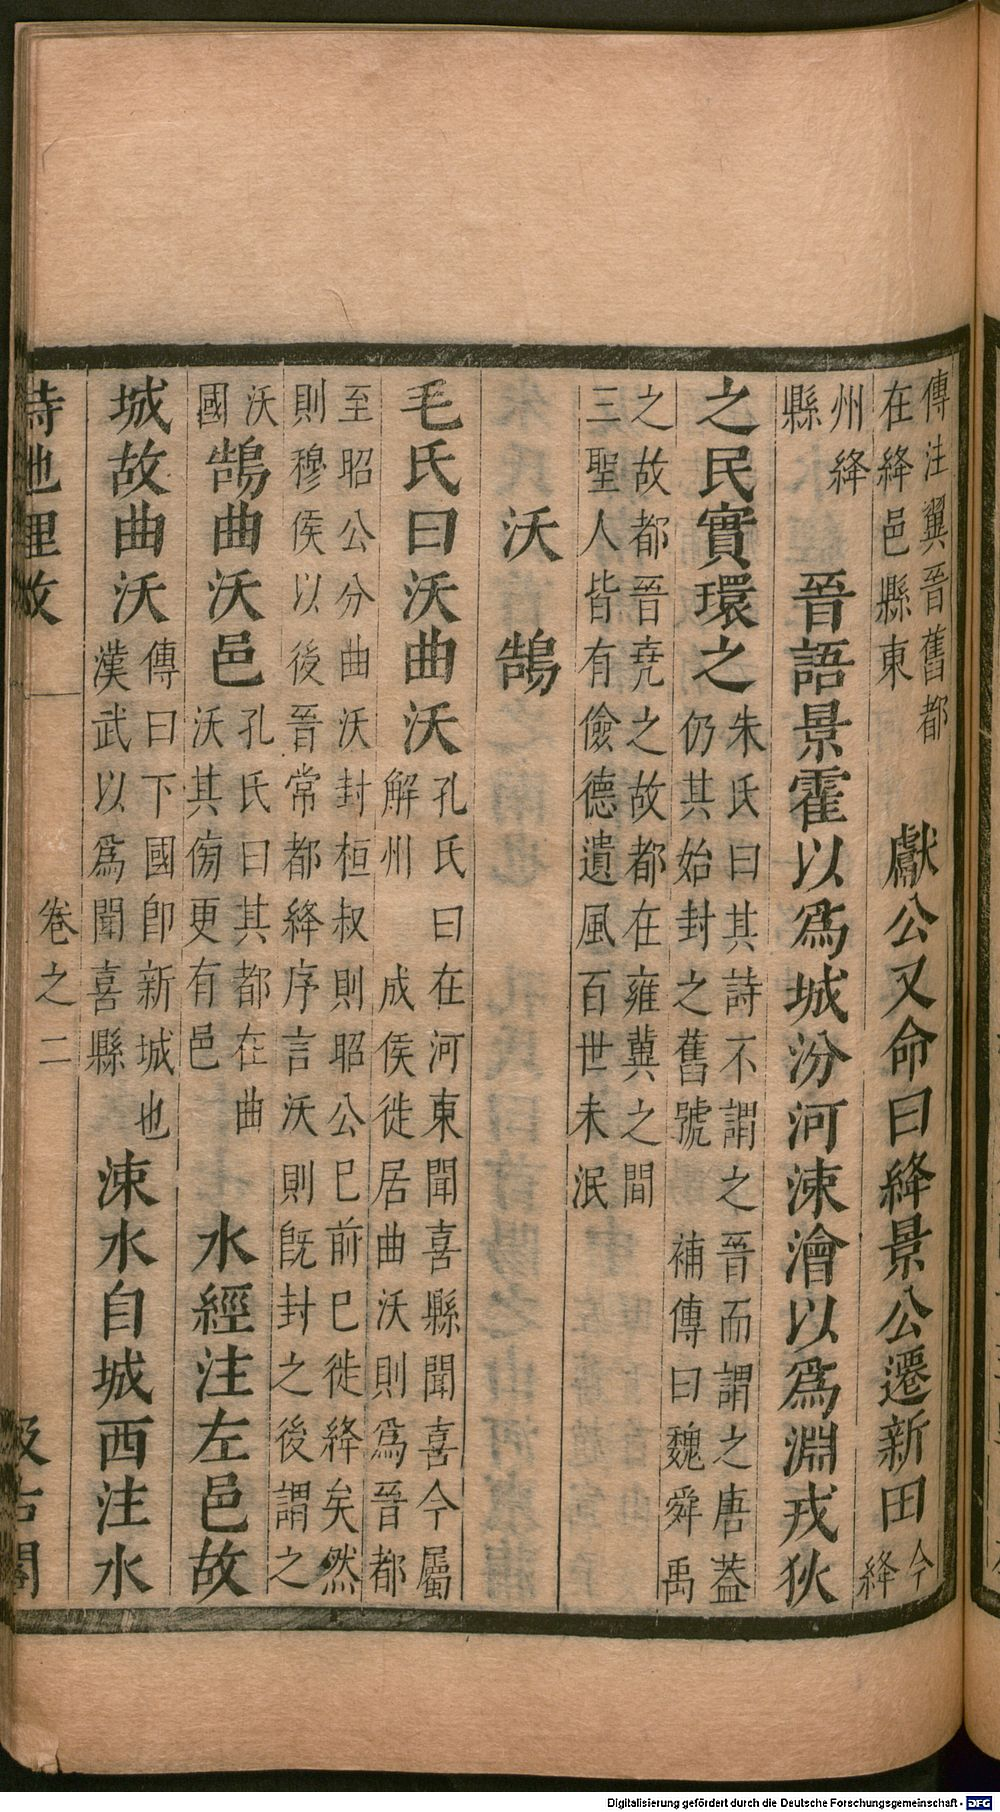 傳注翼晉舊都
在絳邑縣東
獻公又命曰絳景公遷新田
今
絳
州絳
縣
晉語景霍以爲城汾河涑澮以爲淵戎狄
之民實環之
朱氏曰其詩不謂之晉而謂之唐蓋
仍其始封之舊號 補傳曰魏舜禹
之故都晉堯之故都在雍冀之間
三聖人皆有儉德遺風百世未泯
沃 鵠
毛氏曰沃曲沃
孔氏曰在河東聞喜縣聞喜今屬
解州 成侯徙居曲沃則爲晉都
至昭公分曲沃封桓叔則昭公巳前巳徙絳矣然
則穆侯以後晉常都絳序言沃則旣封之後謂之
沃
國
鵠曲沃邑
孔氏曰其都在曲
沃其傍更有邑
水經注左邑故
城故曲沃
傳曰下國卽新城也
漢武以爲聞喜縣
涑水自城西注水
詩地理攷 卷之二 汲古閣
Digitalisierung gefördert durch die Deutsche Forschungsgemeinschaft - DFG